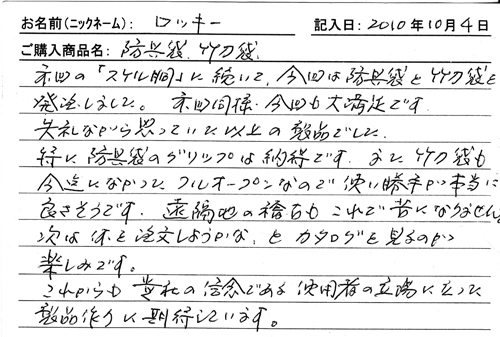 お名前(ニックネーム): ロッキー 記入日: 2010年10月4日
ご購入商品名: 防具袋、竹刀袋
前回の「スケル胴」に続いて、今回は防具袋と竹刀袋を
発注しました。前回同様、今回も大満足です。
失礼ながら思っていた以上の製品でした。
特に防具袋のグリップは納得です。また竹刀袋も
今迄になかったフルオープンなので使い勝手が本当に
良さそうです。遠隔地の稽古もこれで苦になりません。
次は何を注文しようかな、とカタログを見るのが
楽しみです。
これからも貴社の信念である使用者の立場に立った
製品作りに期待しています。